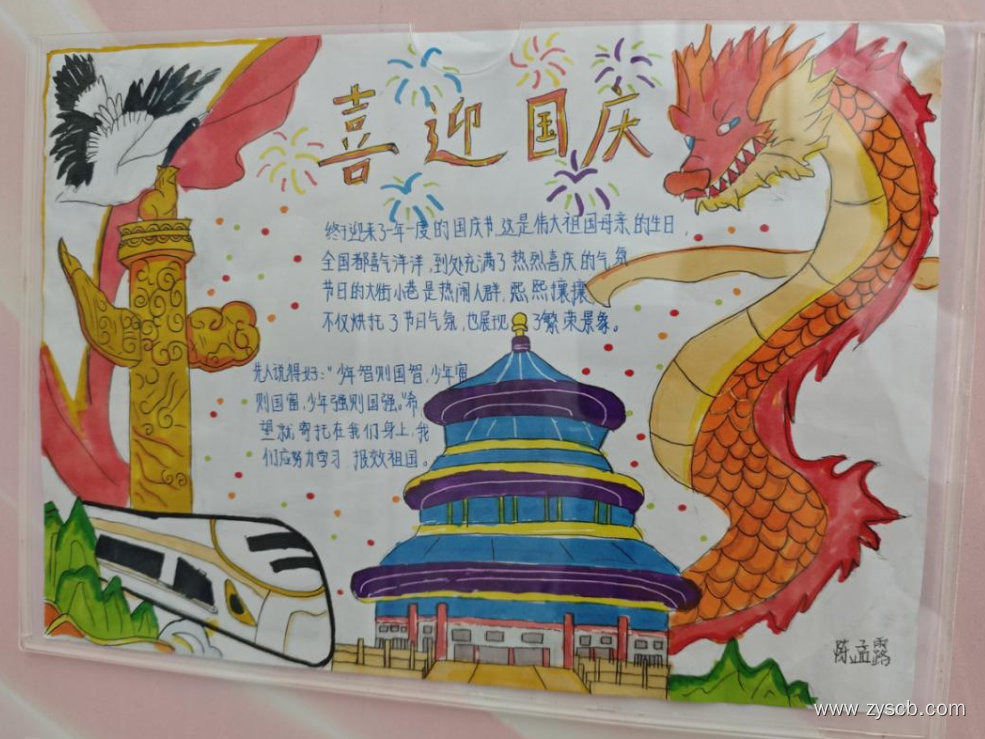 喜迎国庆
终于迎来了一年一度的国庆节.这是伟大祖国母亲的生日,
全国都喜气洋洋,到处充满了热烈喜庆的气氛
节日的大街小巷是热闹人群,熙熙攘攘
不仅烘托了节日气氛,也展现了繁荣景象。
先人说得好:"少年智则国智,少年富
则国富,少年强则国强。"希
望就寄托在我们身上,我
们应努力学习 报效祖国。
陈孟露
www.zyscb.com